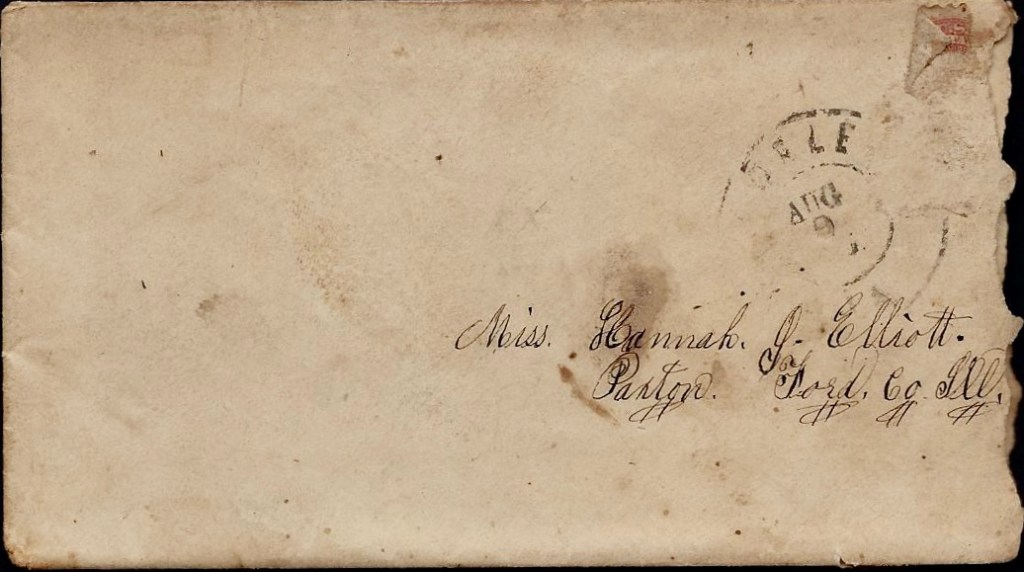 AUG
9
Miss. Hannah. J. Elliott.
Paxton. Ford. Co. Ill.